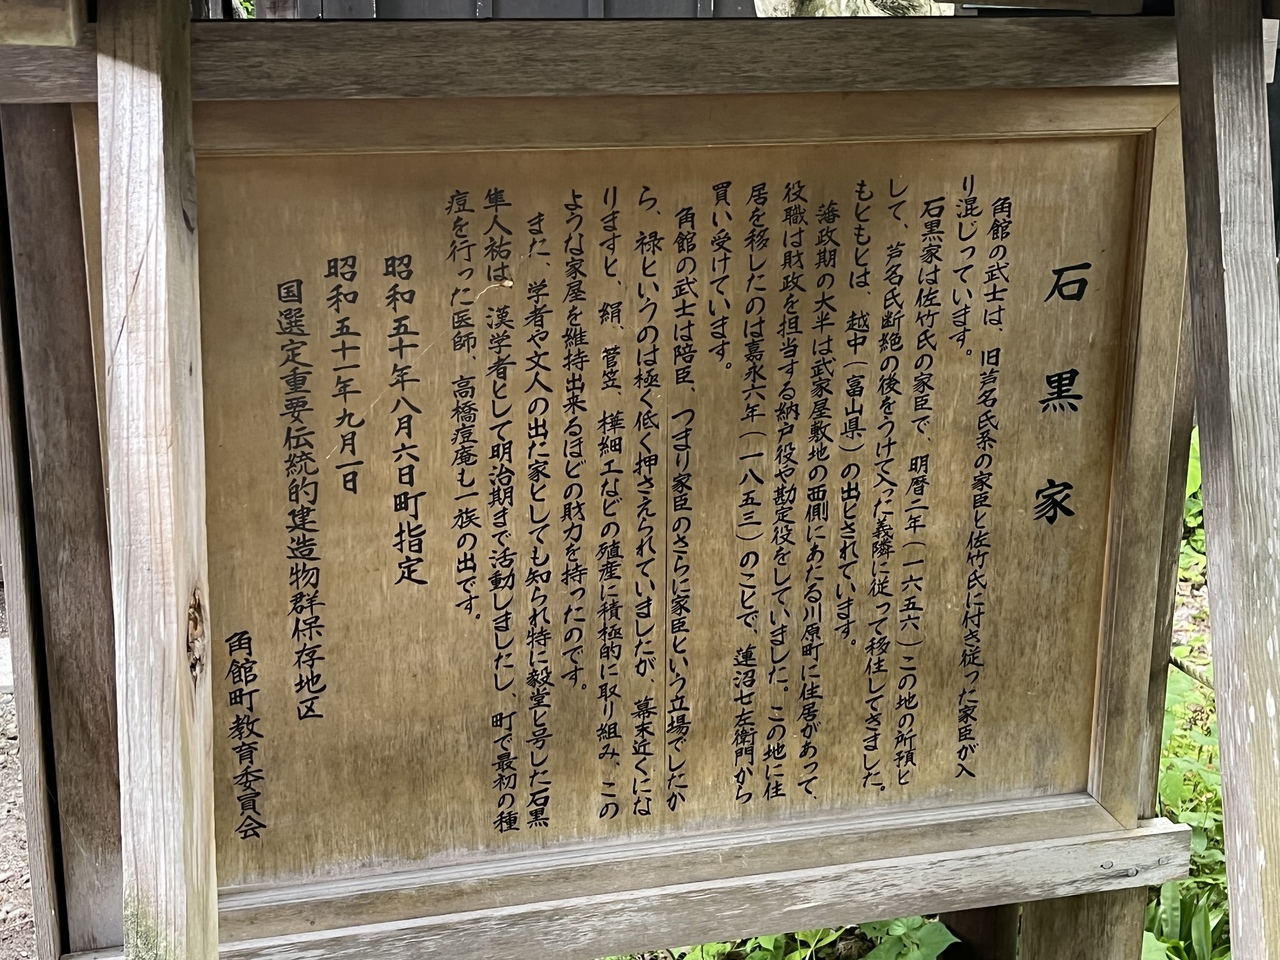 石黒家
角館の武士は、旧芦名氏系の家臣と佐竹氏に付き従った家臣が入
り混じっています。
石黒家は佐竹氏の家臣で、明暦二年（一六五六）この地の所預と
して、芦名氏断絶の後をうけて入った義隣に従って移住してきました。
もともとは、越中（富山県）の出とされています。
藩政期の大半は武家屋敷地の西側にあたる川原町に住居があって、
役職は財政を担当する納戸役や勘定役をしていました。この地に住
居を移したのは嘉永六年（一八五三）のことで、蓮沼七左衛門から
買い受けています。
角館の武士は陪臣、つまり家臣のさらに家臣という立場でしたか
ら、禄というのは極く低く押さえられていましたが、幕末近くにな
りますと、絹、菅笠、樺細工などの殖産に積極的に取り組み、この
ような家屋を維持出来るほどの財力を持ったのです。
また、学者や文人の出た家としても知られ特に毅堂と号した石黒
隼人祐は、漢学者として明治期まで活動しましたし、町で最初の種
痘を行った医師、高橋痘庵も一族の出です。
昭和五十年八月六日町指定
昭和五十一年九月一日
国選定重要伝統的建造物群保存地区
角館町教育委員会